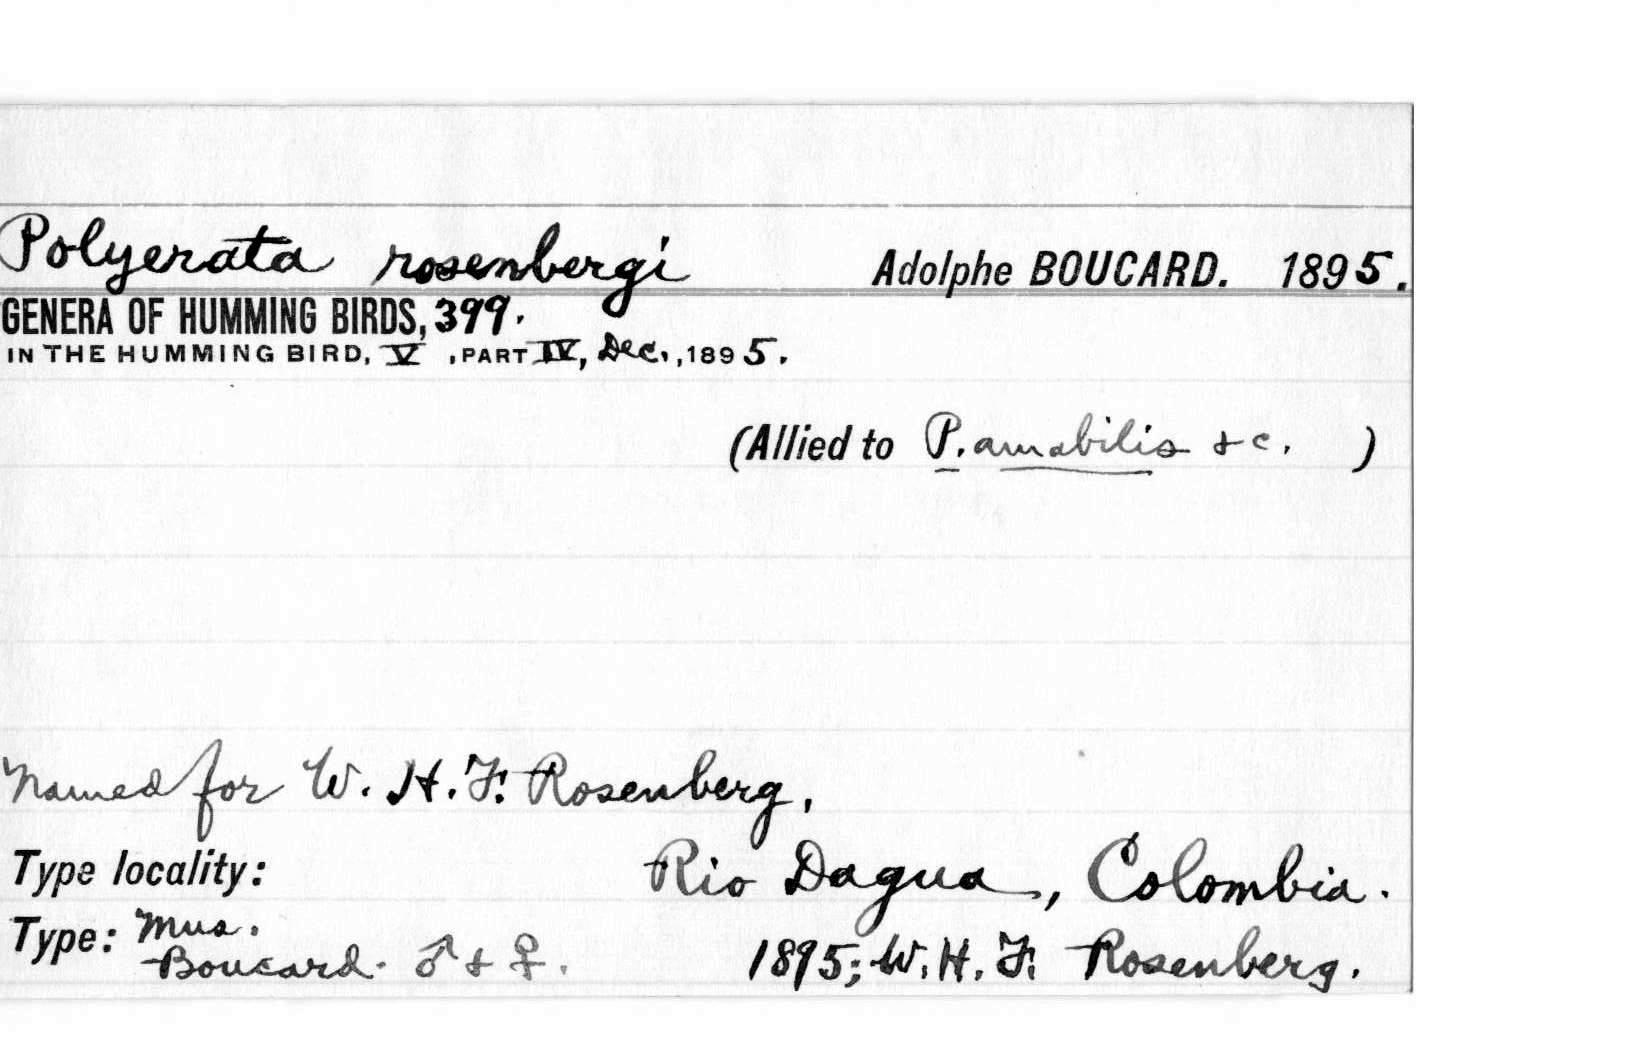 Polyerata rosenbergi Adolphe BOUCARD. 1895.
GENERA OF HUMMING BIRDS, 399.
IN THE HUMMING BIRD, V, PART IV, Dec., 1895.
(Allied to P. amabilis &c. )
Named for W. H. F. Rosenberg.
Type locality: Rio Dagua, Colombia.
Type: Mus. Boucard. ♂ & ♀. 1895; W. H. F. Rosenberg.